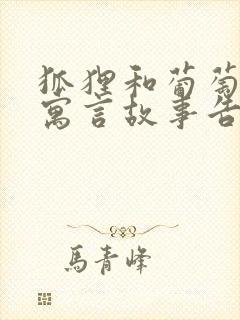 狐狸和葡萄
寓言故事告
馬青峰